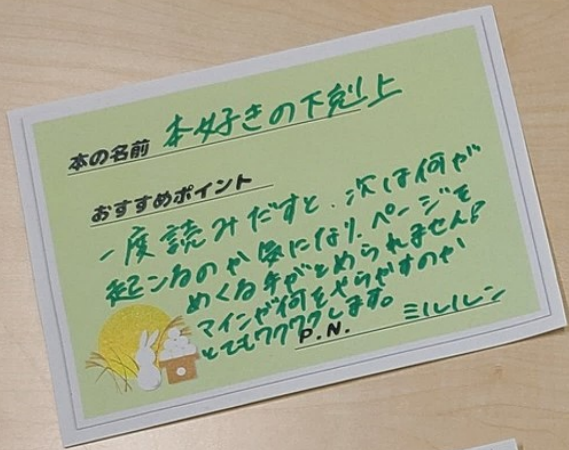 本の名前 本好きの下剋上
おすすめポイント
一度読みだすと、次は何が
起こるのか気になり、ページを
めくる手がとめられません!
マインが何をやらかすのか
とてもワクワクします。
P.N. ミルルン